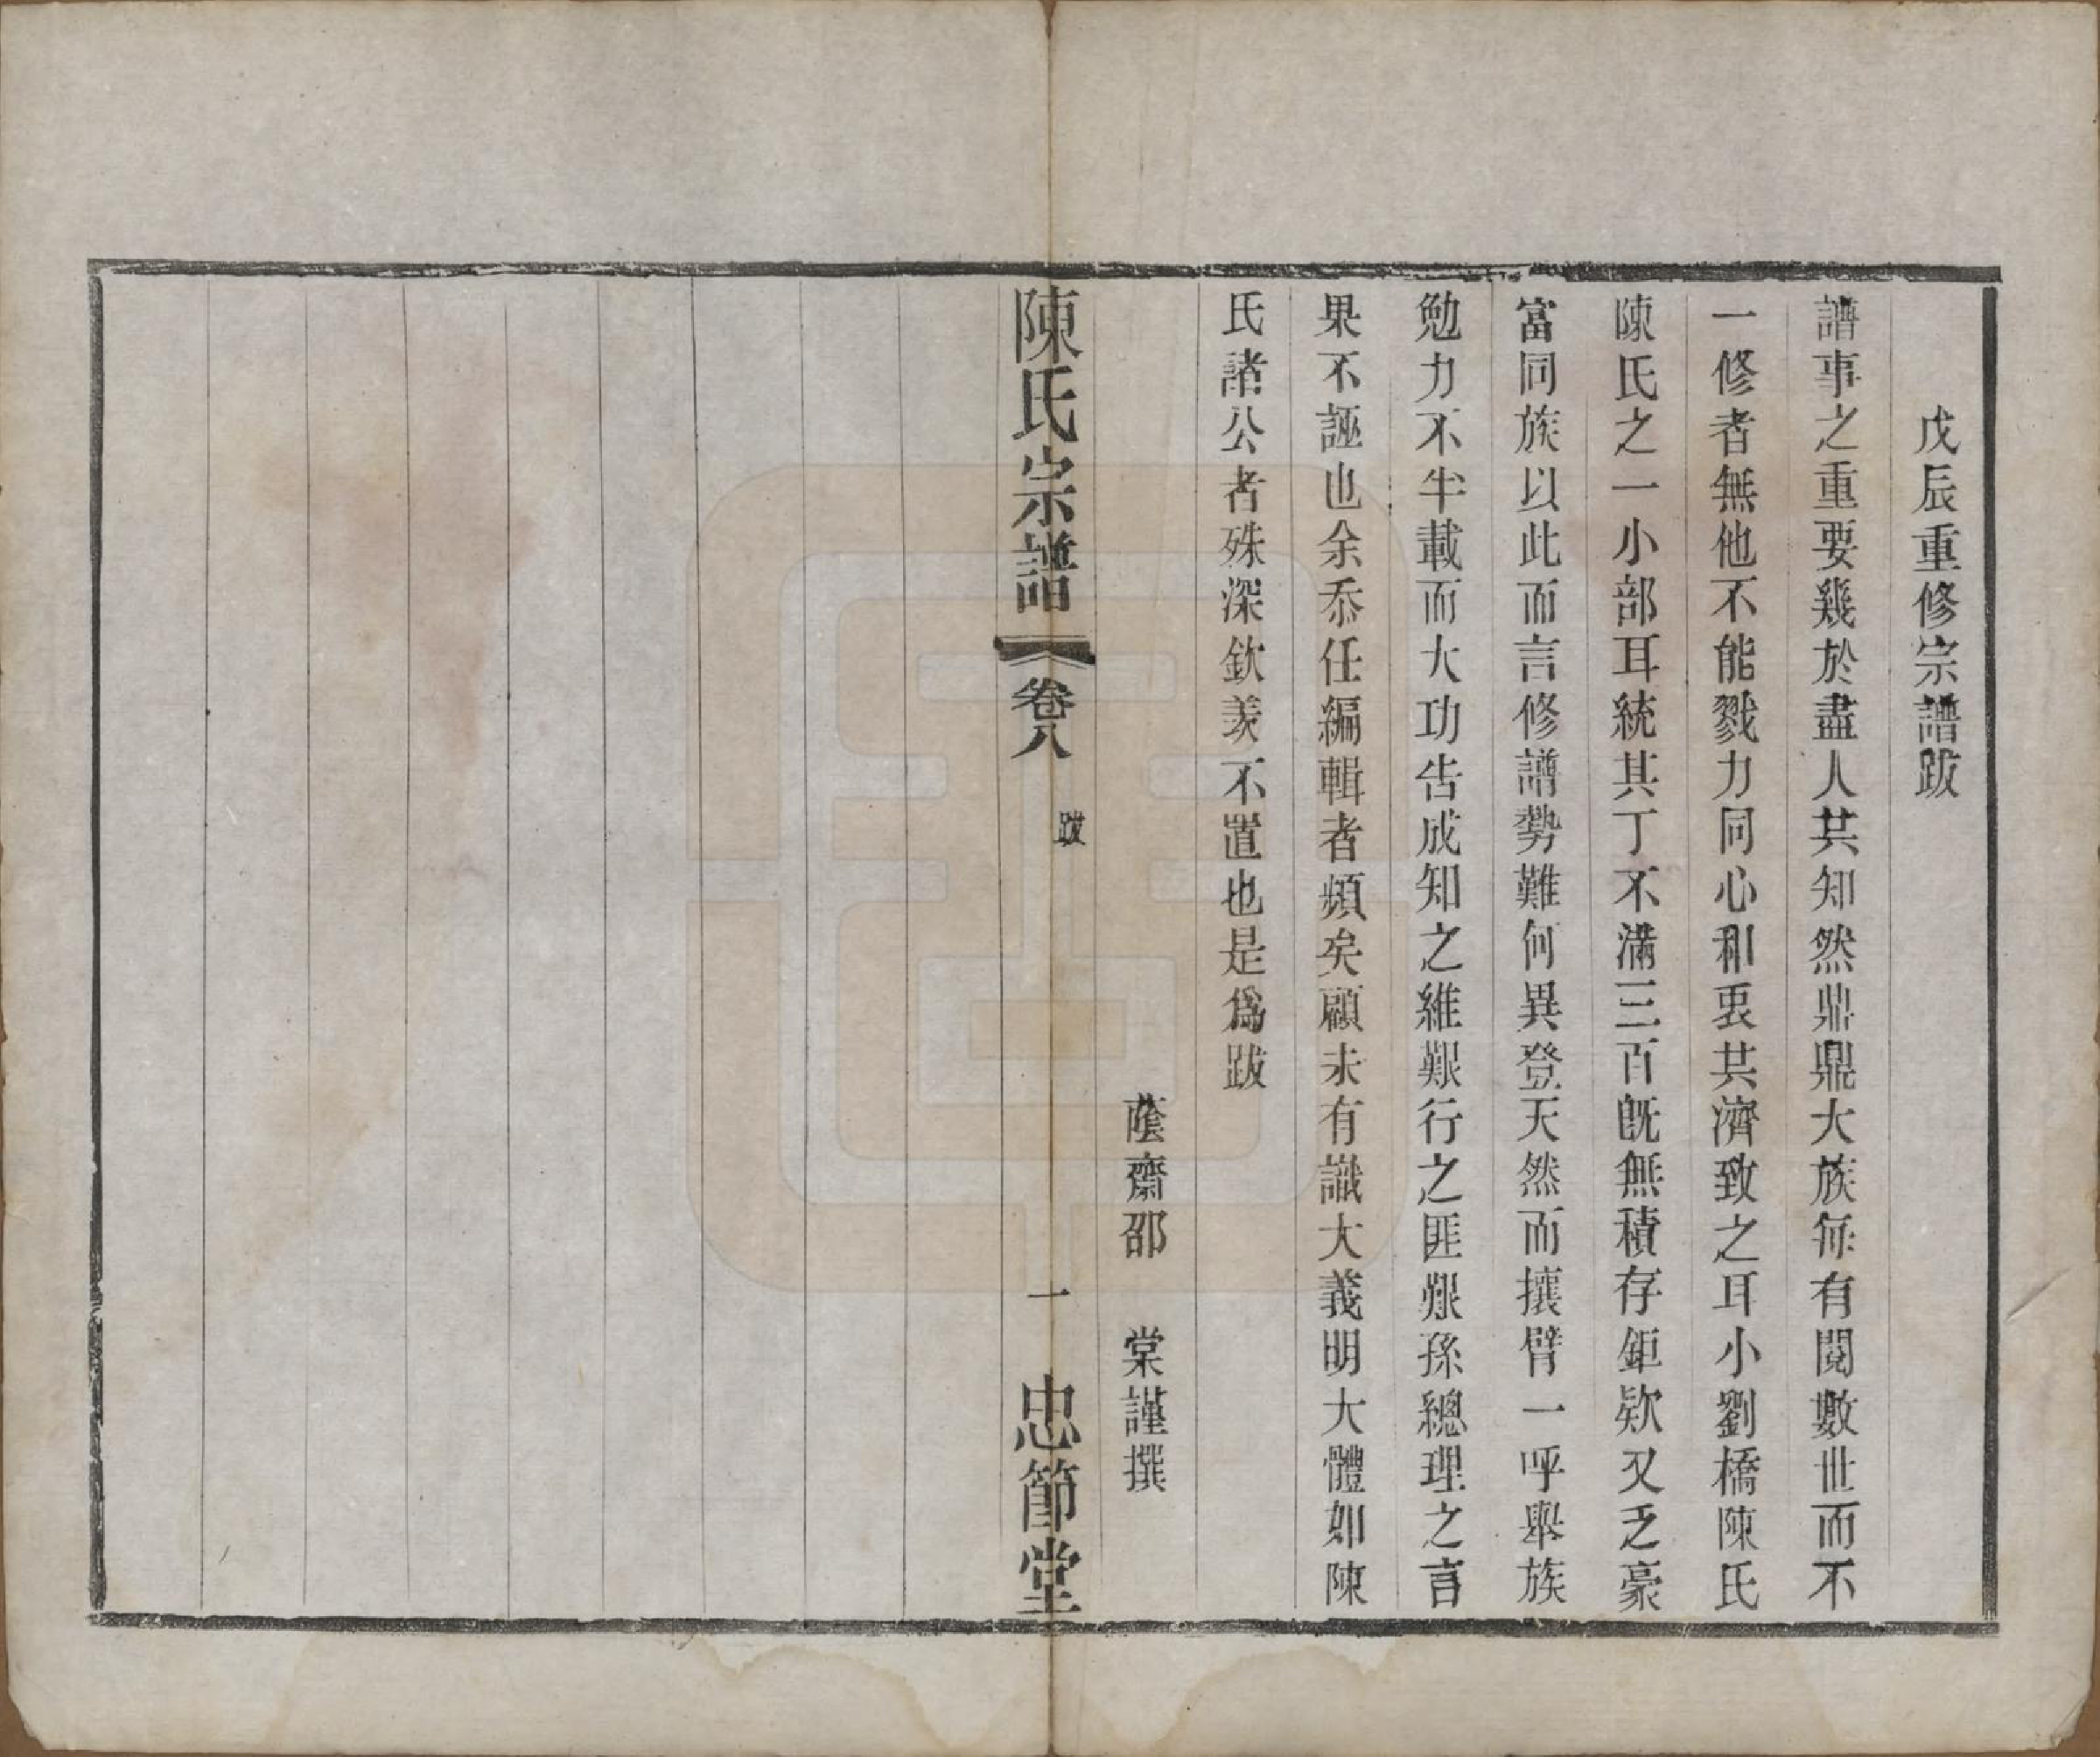 戊辰重修宗譜跋
譜事之重要幾於盡人共知然鼎鼎大族每有閱數世而不
一修者無他不能戮力同心和衷共濟致之耳小劉橋陳氏
陳氏之一小部耳統其丁不滿三百旣無積存鉅欵又乏豪
富同族以此而言修譜勢難何異登天然而攘臂一呼舉族
勉力不半載而大功告成知之維艱行之匪艱孫總理之言
果不誣也余忝任編輯者頻矣顧未有識大義明大體如陳
氏諸公者殊深欽羡不置也是爲跋
蔭齋邵 棠謹撰
陳氏宗譜 卷八 跋 一 忠節堂